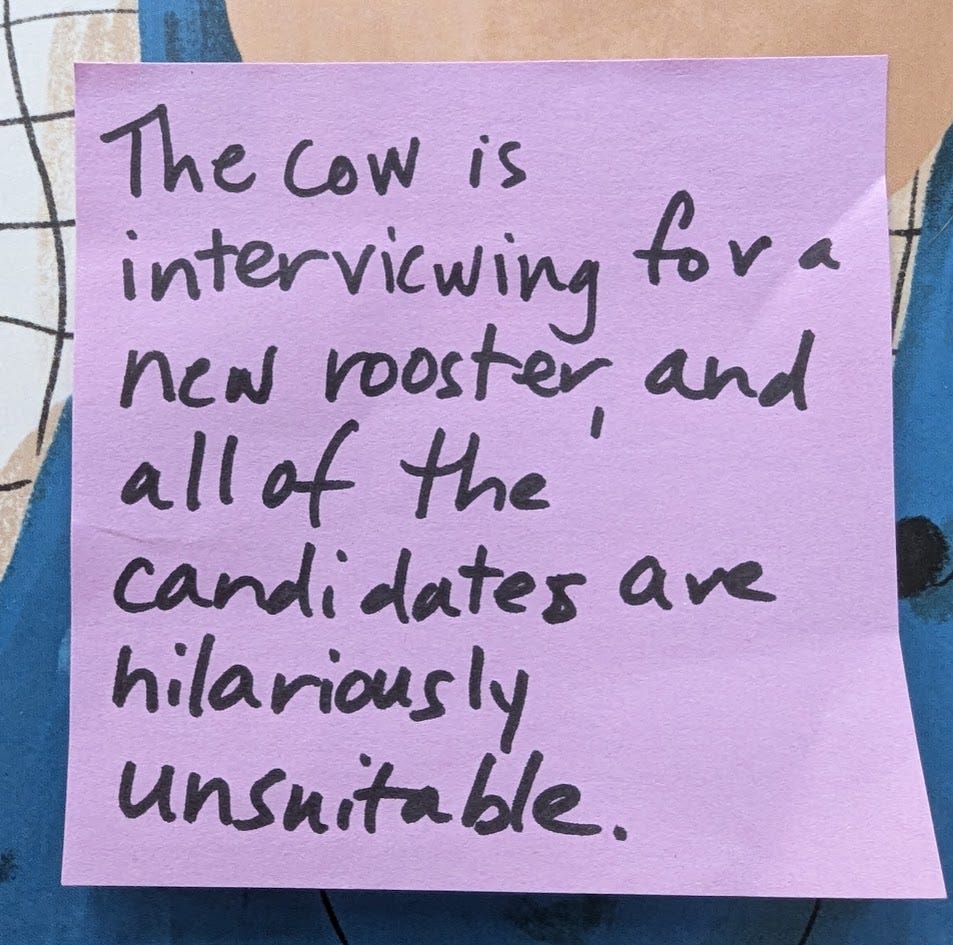 The cow is
interviewing for a
new rooster, and
all of the
candidates are
hilariously
unsuitable.